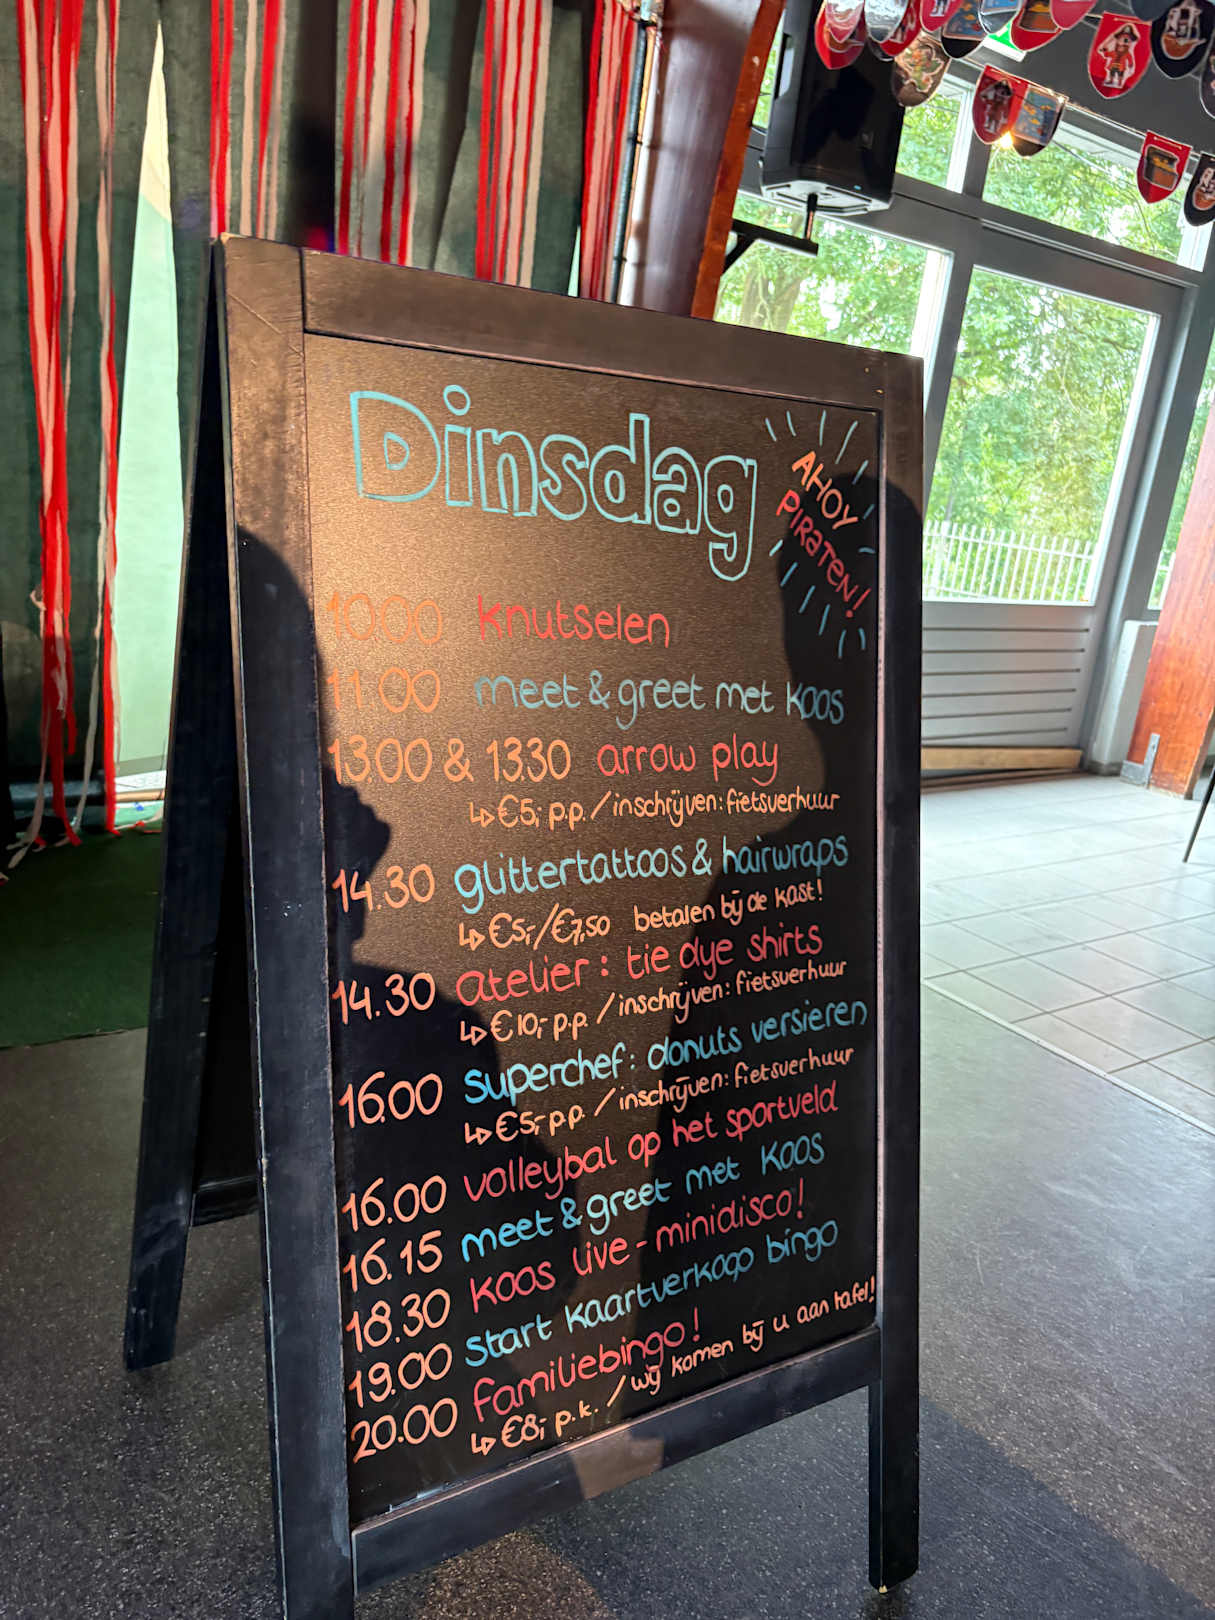 Dinsdag
AHOY
PIRATEN!
10.00 knutselen
11.00 meet & greet met Koos
13.00 & 13.30 arrow play
↳ €5,- p.p. / inschrijven: fietsverhuur
14.30 glittertattoos & hairwraps
↳ €5,-/€7,50 betalen bij de kast!
14.30 atelier: tie dye shirts
↳ €10,- p.p. / inschrijven: fietsverhuur
16.00 superchef: donuts versieren
↳ €5,- p.p. / inschrijven: fietsverhuur
16.00 volleybal op het sportveld
16.15 meet & greet met Koos
18.30 Koos live - minidisco!
19.00 start kaartverkoop bingo
20.00 familiebingo!
↳ €8,- p.k. / wij komen bij u aan tafel!